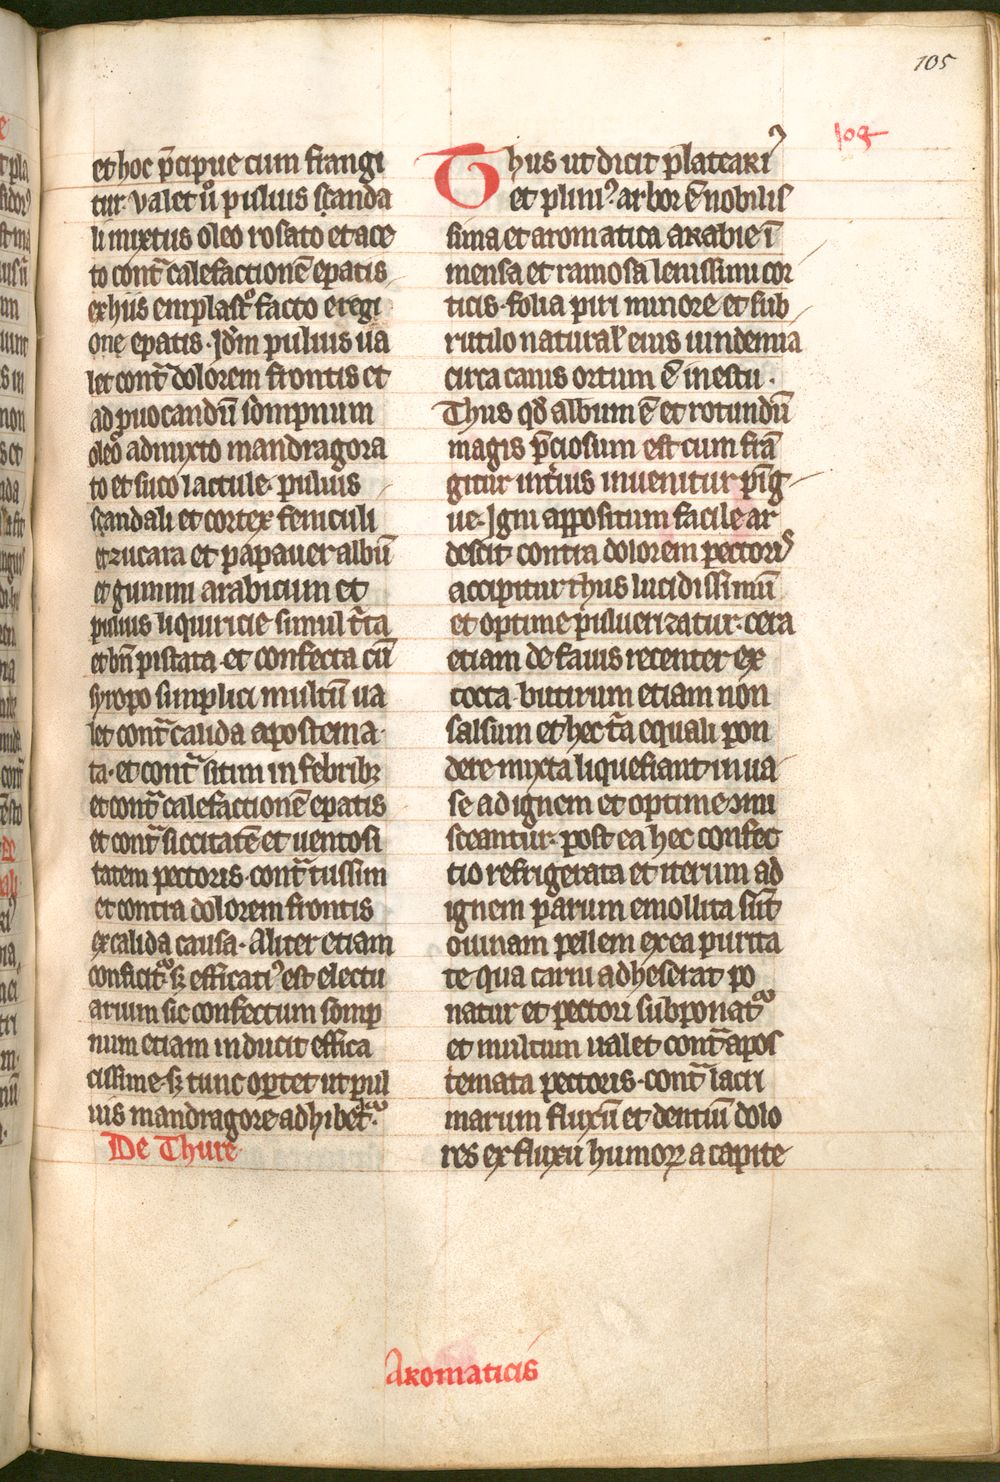 105
109
et hoc p̄cipue cum frangi
tur. valet ů puluis scanda
li mixtus oleo rosato et ace
to cont̄ calefactionē epatis
ex hiis emplast̊ facto e regi
one epatis. Jdm̄ puluis ua
let cont̄ dolorem frontis et
ad puocandū sompnum
oleo admixto mandragora
to et suco lactule. puluis
scandali et cortex feniculi
et zucara et papauer albū
et gummi arabicum et
puluis liquiricie simul t̄ta
et bn̄ pistata et confecta cū
syropo simplici multū ua
let cont̄ calida apostema
ta. et cont̄ sitim in febribꝫ
et cont̄ calefactionē epatis
et cont̄ siccitatē et uentosi
tatem pectoris. cont̄ tussim
et contra dolorem frontis
ex calida causa. Aliter etiam
conficit᷑. sꝫ efficati᷒ est electu
arium sic confectum somp
num etiam inducit effica
cissime. sꝫ tunc oꝑtet ut pul
uis mandragore adhibet᷑.
De Thure
Thus ut dicit plateari᷒
et plini᷒. arbor ē nobilis
sima et aromatica arabie ī
mensa et ramosa lenissimi cor
ticis. folia piri minore et sub
rutilo natural᷒ eius uindemia
circa canis ortum ē in estu.
Thus qd̄ album ē et rotundū
magis p̄ciosum est cum frā
gitur int̄ius inuenitur pīg
ue. Igni appositum facile ar
descit contra dolorem pectoris
accipitur thus lucidissimū
et optime pulueriratur. cera
etiam de fauis recenter ex
cocta. butirum etiam non
salsum et hec t̄a equali pon
dere mixta liquefiant in ua
se ad ignem et optime 9mi
sceantur. post ea hec confec
tio refrigerata et iterum ad
ignem parum emollita sūt
ouinam pellem ex ea purita
te qua carni adheserat po
natur et pectori subponat᷑
et multum ualet cont̄ apos
temata pectoris. cont̄ lacri
marum fluxū et dentiū dolo
res ex fluxu humoꝝ a capite
Aromaticis